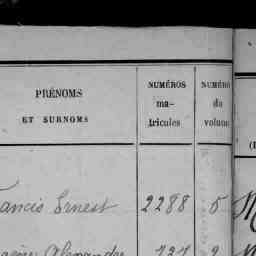 PRÉNOMS
ET SURNOMS
NUMÉROS
ma-
tricules
NUMÉRO
du
volume
rancis Ernest 2288 5
Alexandre 737 2